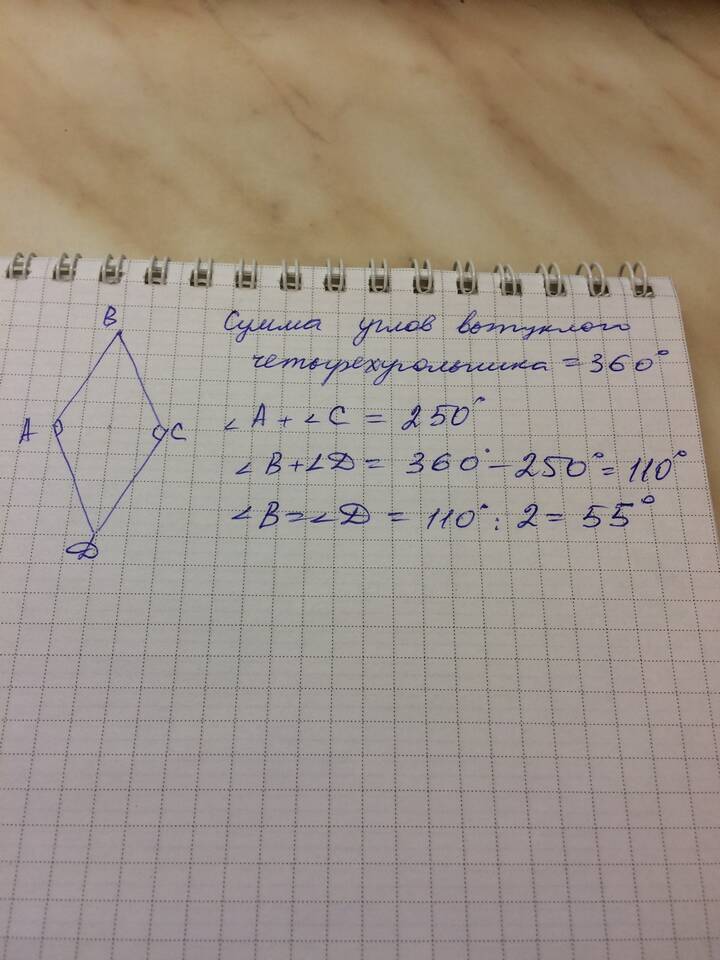 B
Сумма углов выпуклого
четырехугольника = 360°
A
C
∠A + ∠C = 250°
∠B + ∠D = 360° - 250° = 110°
∠B = ∠D = 110° : 2 = 55°
D